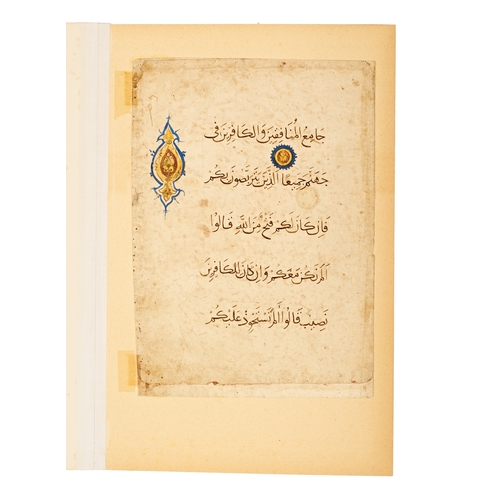 جامع المنافقين والكافرين في
جهنم جميعا الذين يتربصون بكم
فإن كان لكم فتح من الله قالوا
ألم نكن معكم وإن كان للكافرين
نصيب قالوا ألم نستحوذ عليكم